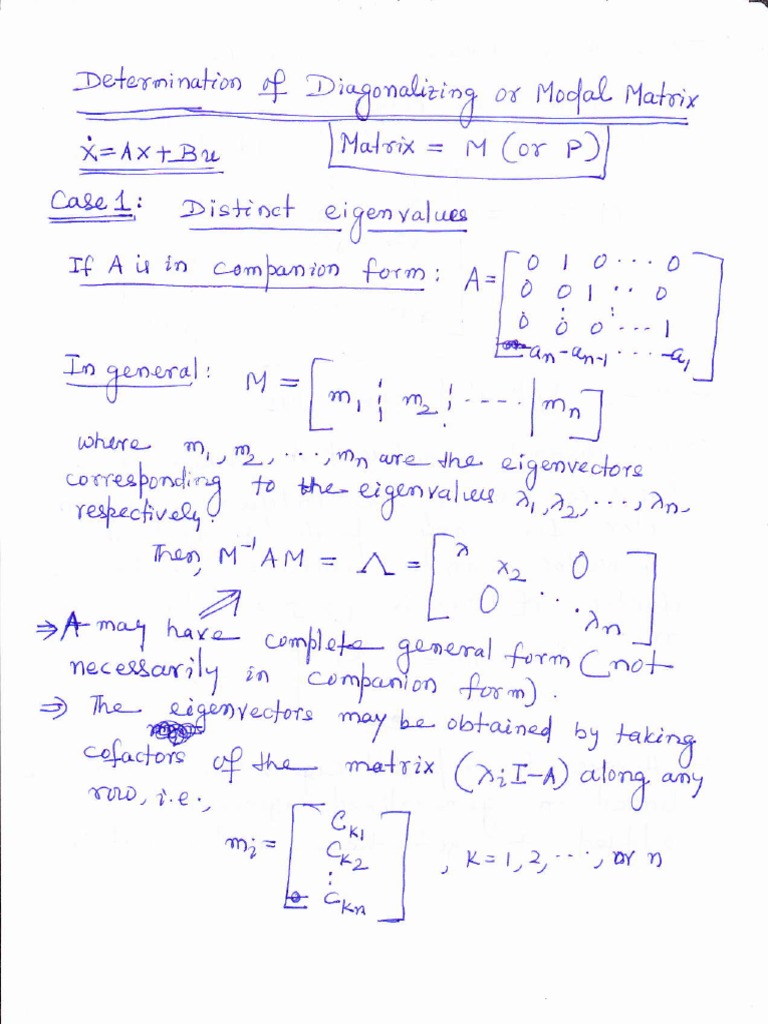 Determination of Diagonalizing or Modal Matrix
ẋ = Ax + Bu    Matrix = M (or P)
Case 1: Distinct eigenvalues
If A is in companion form: A = [0 1 0 ... 0
0 0 1 .. 0
0 0 0 ... 1
-an -an-1 ... -a1]
In general: M = [m1 ¦ m2 ¦ ---- | mn]
where m1, m2, ..., mn are the eigenvectors
corresponding to the eigenvalues λ1, λ2, ..., λn,
respectively.
Then, M⁻¹AM = Λ = [λ λ2 0
0 ... λn]
⇒ A may have complete general form (not
necessarily in companion form).
⇒ The eigenvectors may be obtained by taking
cofactors of the matrix (λiI-A) along any
row, i.e.,
mi = [Ck1
Ck2
⋮
Ckn] , k = 1, 2, ..., or n